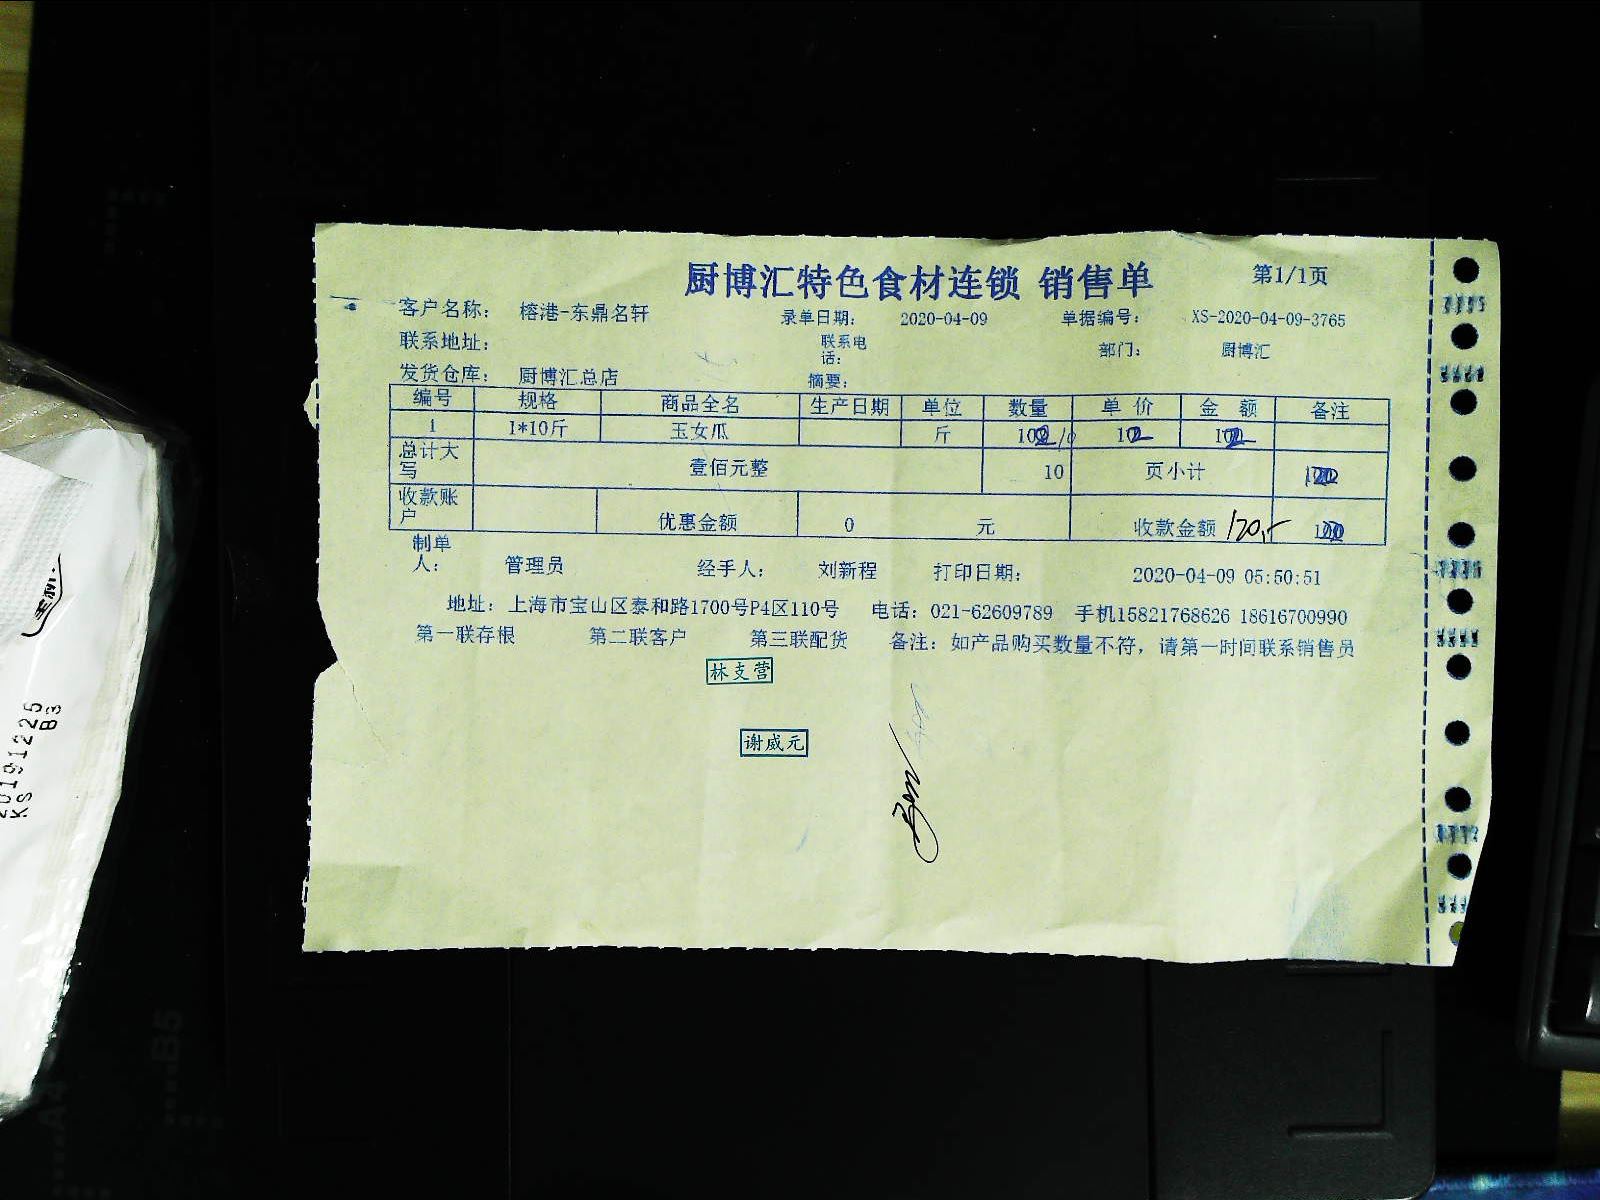 厨博汇特色食材连锁 销售单 第1/1页
客户名称： 榕港-东鼎名轩 录单日期： 2020-04-09 单据编号： XS-2020-04-09-3765
联系地址： 联系电话： 部门： 厨博汇
发货仓库： 厨博汇总店 摘要：
编号 规格 商品全名 生产日期 单位 数量 单价 金额 备注
1 1*10斤 玉女瓜 斤
总计大写 壹佰元整 10 页小计
收款账户 优惠金额 0 元 收款金额 120,-
制单人： 管理员 经手人： 刘新程 打印日期： 2020-04-09 05:50:51
地址：上海市宝山区泰和路1700号P4区110号 电话：021-62609789 手机15821768626 18616700990
第一联存根 第二联客户 第三联配货 备注：如产品购买数量不符，请第一时间联系销售员
林支营
谢威元
20191225
KS B3
B5
A4